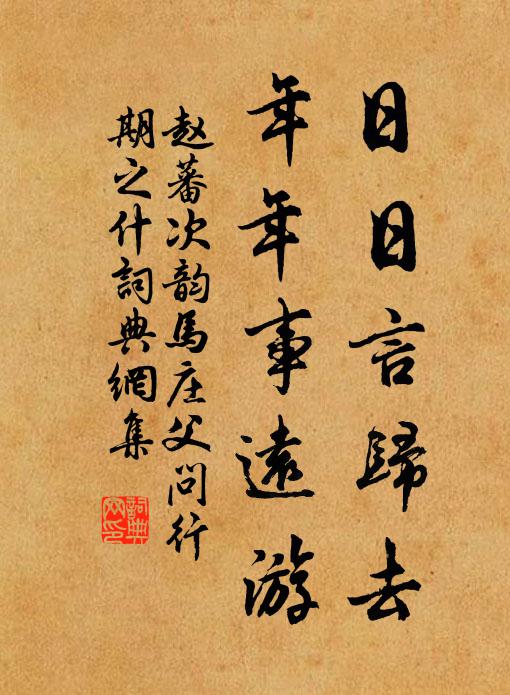 日日言歸去
年年事遠游
赵蕃次韵馬庄父问行
期之什詞典網集
詞典
网印